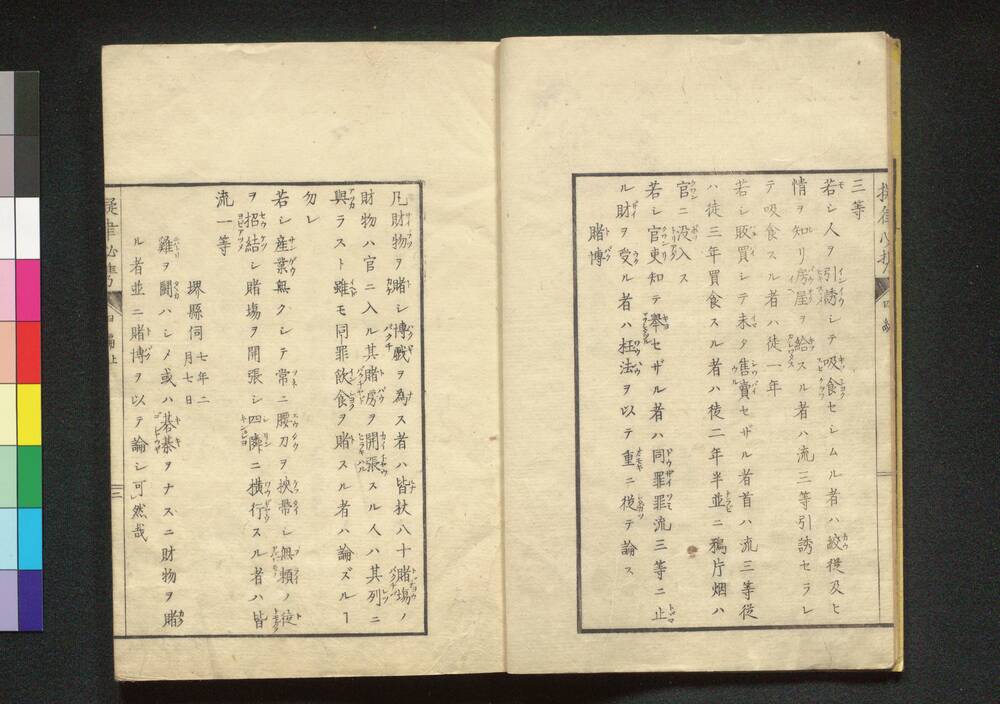 三等
若シ人ヲ引誘シテ吸食セシムル者ハ絞從及ヒ
情ヲ知リ房屋ヲ給スル者ハ流三等引誘セラレ
テ吸食スル者ハ徒一年
若シ販買シテ未タ售賣セザル者首ハ流三等從
ハ徒三年買食スル者ハ徒二年半並ニ鴉片烟ハ
官ニ没入ス
若シ官吏知テ擧セザル者ハ同罪罪流三等ニ止
ル財ヲ受ル者ハ枉法ヲ以テ重ニ從テ論ス
賭博
凡財物ヲ賭シ博戲ヲ為ス者ハ皆杖八十賭塲ノ
財物ハ官ニ入ル其賭房ヲ開張スル人ハ其列ニ
與ラスト雖モ同罪飲食ヲ賭スル者ハ論ズルヿ
勿レ
若シ産業無クシテ常ニ腰刀ヲ挾帶シ無頼ノ徒
ヲ招結シ賭塲ヲ開張シ四隣ニ橫行スル者ハ皆
流一等
堺縣伺 七年二月七日
雞ヲ鬪ハシメ或ハ碁棊ヲナスニ財物ヲ賭
ル者並ニ賭博ヲ以テ論シ可然哉
三